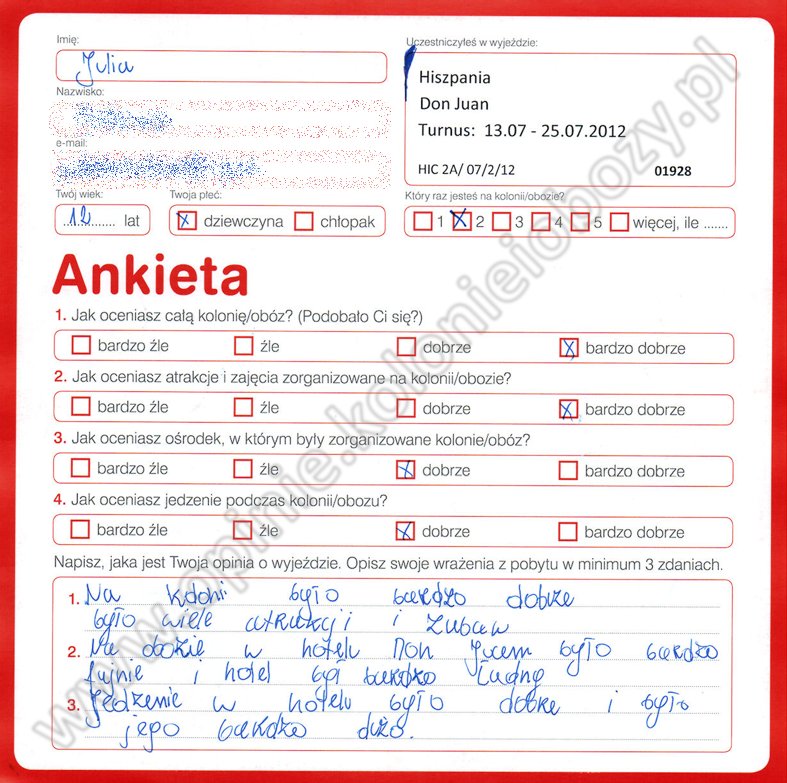 Imię:
Julia
Nazwisko:
e-mail:
Twój wiek:
12 lat
Twoja płeć:
dziewczyna chłopak
Uczestniczyłeś w wyjeździe:
Hiszpania
Don Juan
Turnus: 13.07 - 25.07.2012
HIC 2A/ 07/2/12 01928
Który raz jesteś na kolonii/obozie?
1 2 3 4 5 więcej, ile .......
Ankieta
1. Jak oceniasz całą kolonię/obóz? (Podobało Ci się?)
bardzo źle źle dobrze bardzo dobrze
2. Jak oceniasz atrakcje i zajęcia zorganizowane na kolonii/obozie?
bardzo źle źle dobrze bardzo dobrze
3. Jak oceniasz ośrodek, w którym były zorganizowane kolonie/obóz?
bardzo źle źle dobrze bardzo dobrze
4. Jak oceniasz jedzenie podczas kolonii/obozu?
bardzo źle źle dobrze bardzo dobrze
Napisz, jaka jest Twoja opinia o wyjeździe. Opisz swoje wrażenia z pobytu w minimum 3 zdaniach.
1. Na kolonii było bardzo dobrze
było wiele atrakcji i zabaw
2. Na obozie w hotelu Don Juan było bardzo
fajnie i hotel był bardzo ładny
3. Jedzenie w hotelu było dobre i było
jego bardzo dużo.
www.opinie.kolonieiobozy.pl